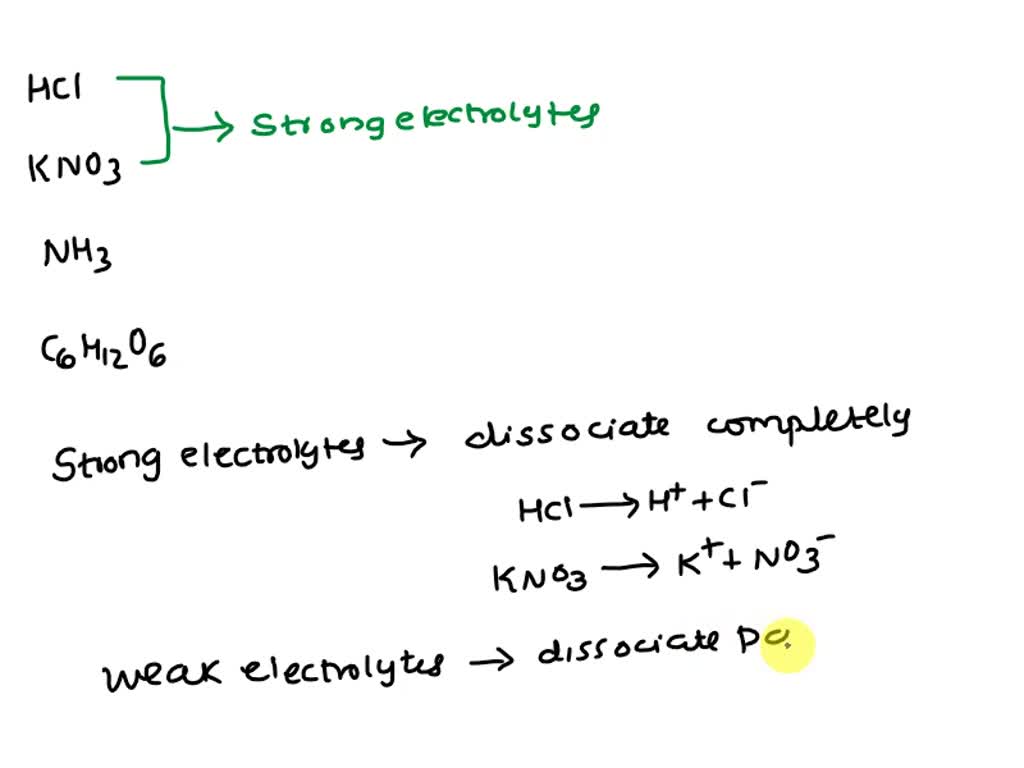 HCl
→ Strong electrolytes
KNO3
NH3
C6H12O6
Strong electrolytes → dissociate completely
HCl → H+ + Cl-
KNO3 → K+ + NO3-
weak electrolytes → dissociate pa